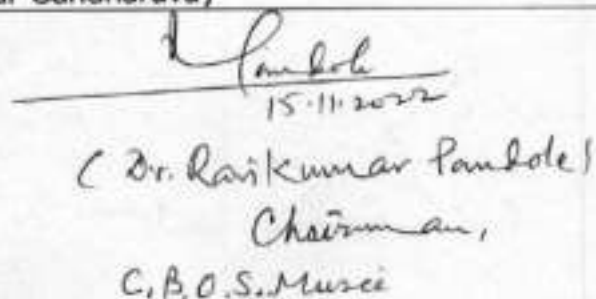 Pandole
15.11.2022
( Dr. Ravikumar Pandole )
Chairman,
C.B.O.S. Music